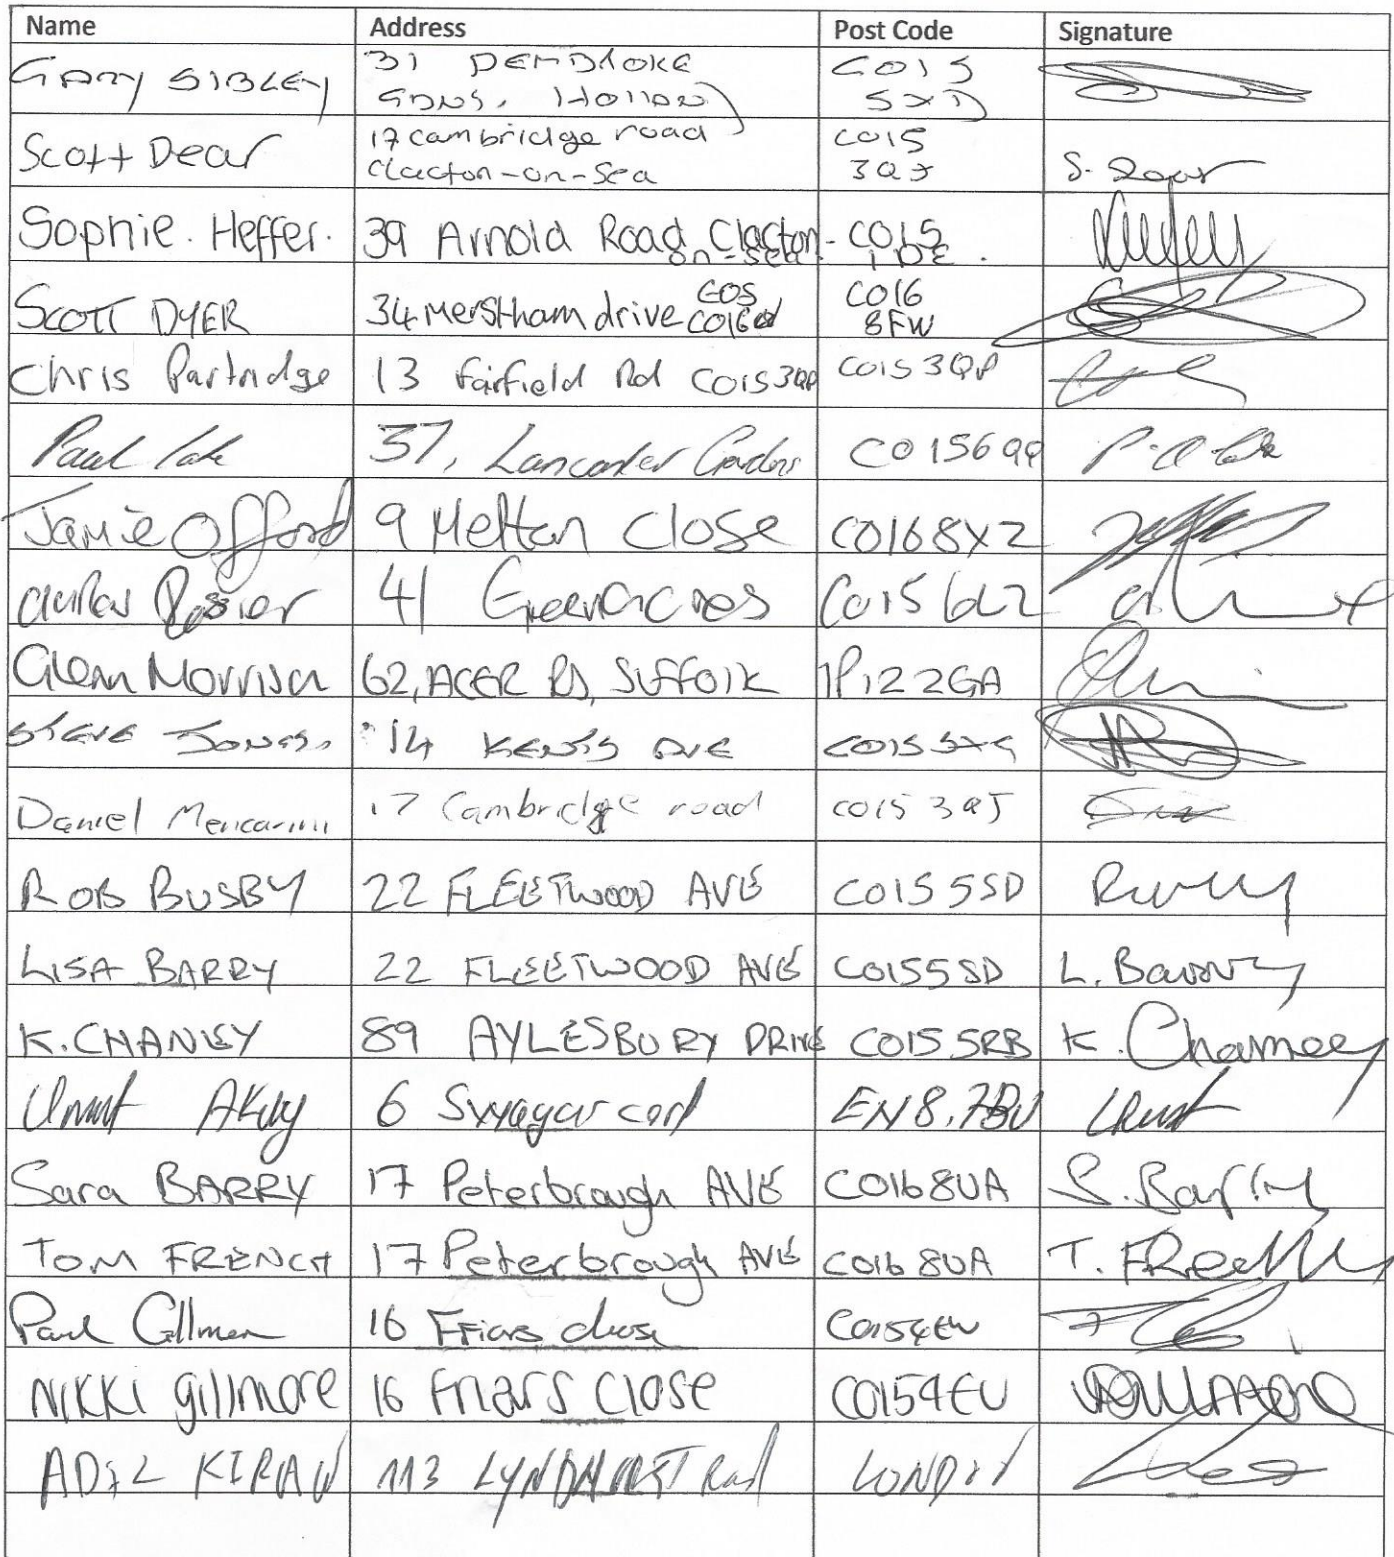 Name Address Post Code Signature
Gary SIBLEY 31 PEMBROKE GDNS, Holland CO15 5XD
Scott Dear 17 cambridge road Clacton-on-Sea CO15 3QJ S. Dear
Sophie. Heffer. 39 Arnold Road Clacton-on-sea. CO15 1DE.
SCOTT DYER 34 Merstham drive COS CO16 CO16 8FW
Chris Partridge 13 Fairfield Rd CO15 3QP CO15 3QP
Paul 37, Lancaster Gardens CO156QQ
Jamie Offord 9 Melton Close CO168XZ
41 Greenacres CO15 6LZ
Glenn Morrison 62, ACER RD, SUFFOlK IP122GA
STEVE JONES. 14 AVE CO15
Daniel Mencarini 17 Cambridge road CO15 3QJ
ROB BUSBY 22 FLEETWOOD AVE CO15 5SD
LISA BARRY 22 FLEETWOOD AVE CO155SD L. Barry
K. CHANEY 89 AYLESBURY DRIVE CO15 5RB K. Chaney
Umut 6 EN8,7BU Umut
Sara BARRY 17 Peterbrough AVE CO168UA S. Barry
TOM FRENCH 17 Peterbrough AVE CO16 8UA T. FRench
Paul 16 Friars close CO154EU
NIKKI gillmore 16 Friars Close CO154EU
ADIL KIRAN 113 LYNDHURST Road LONDON